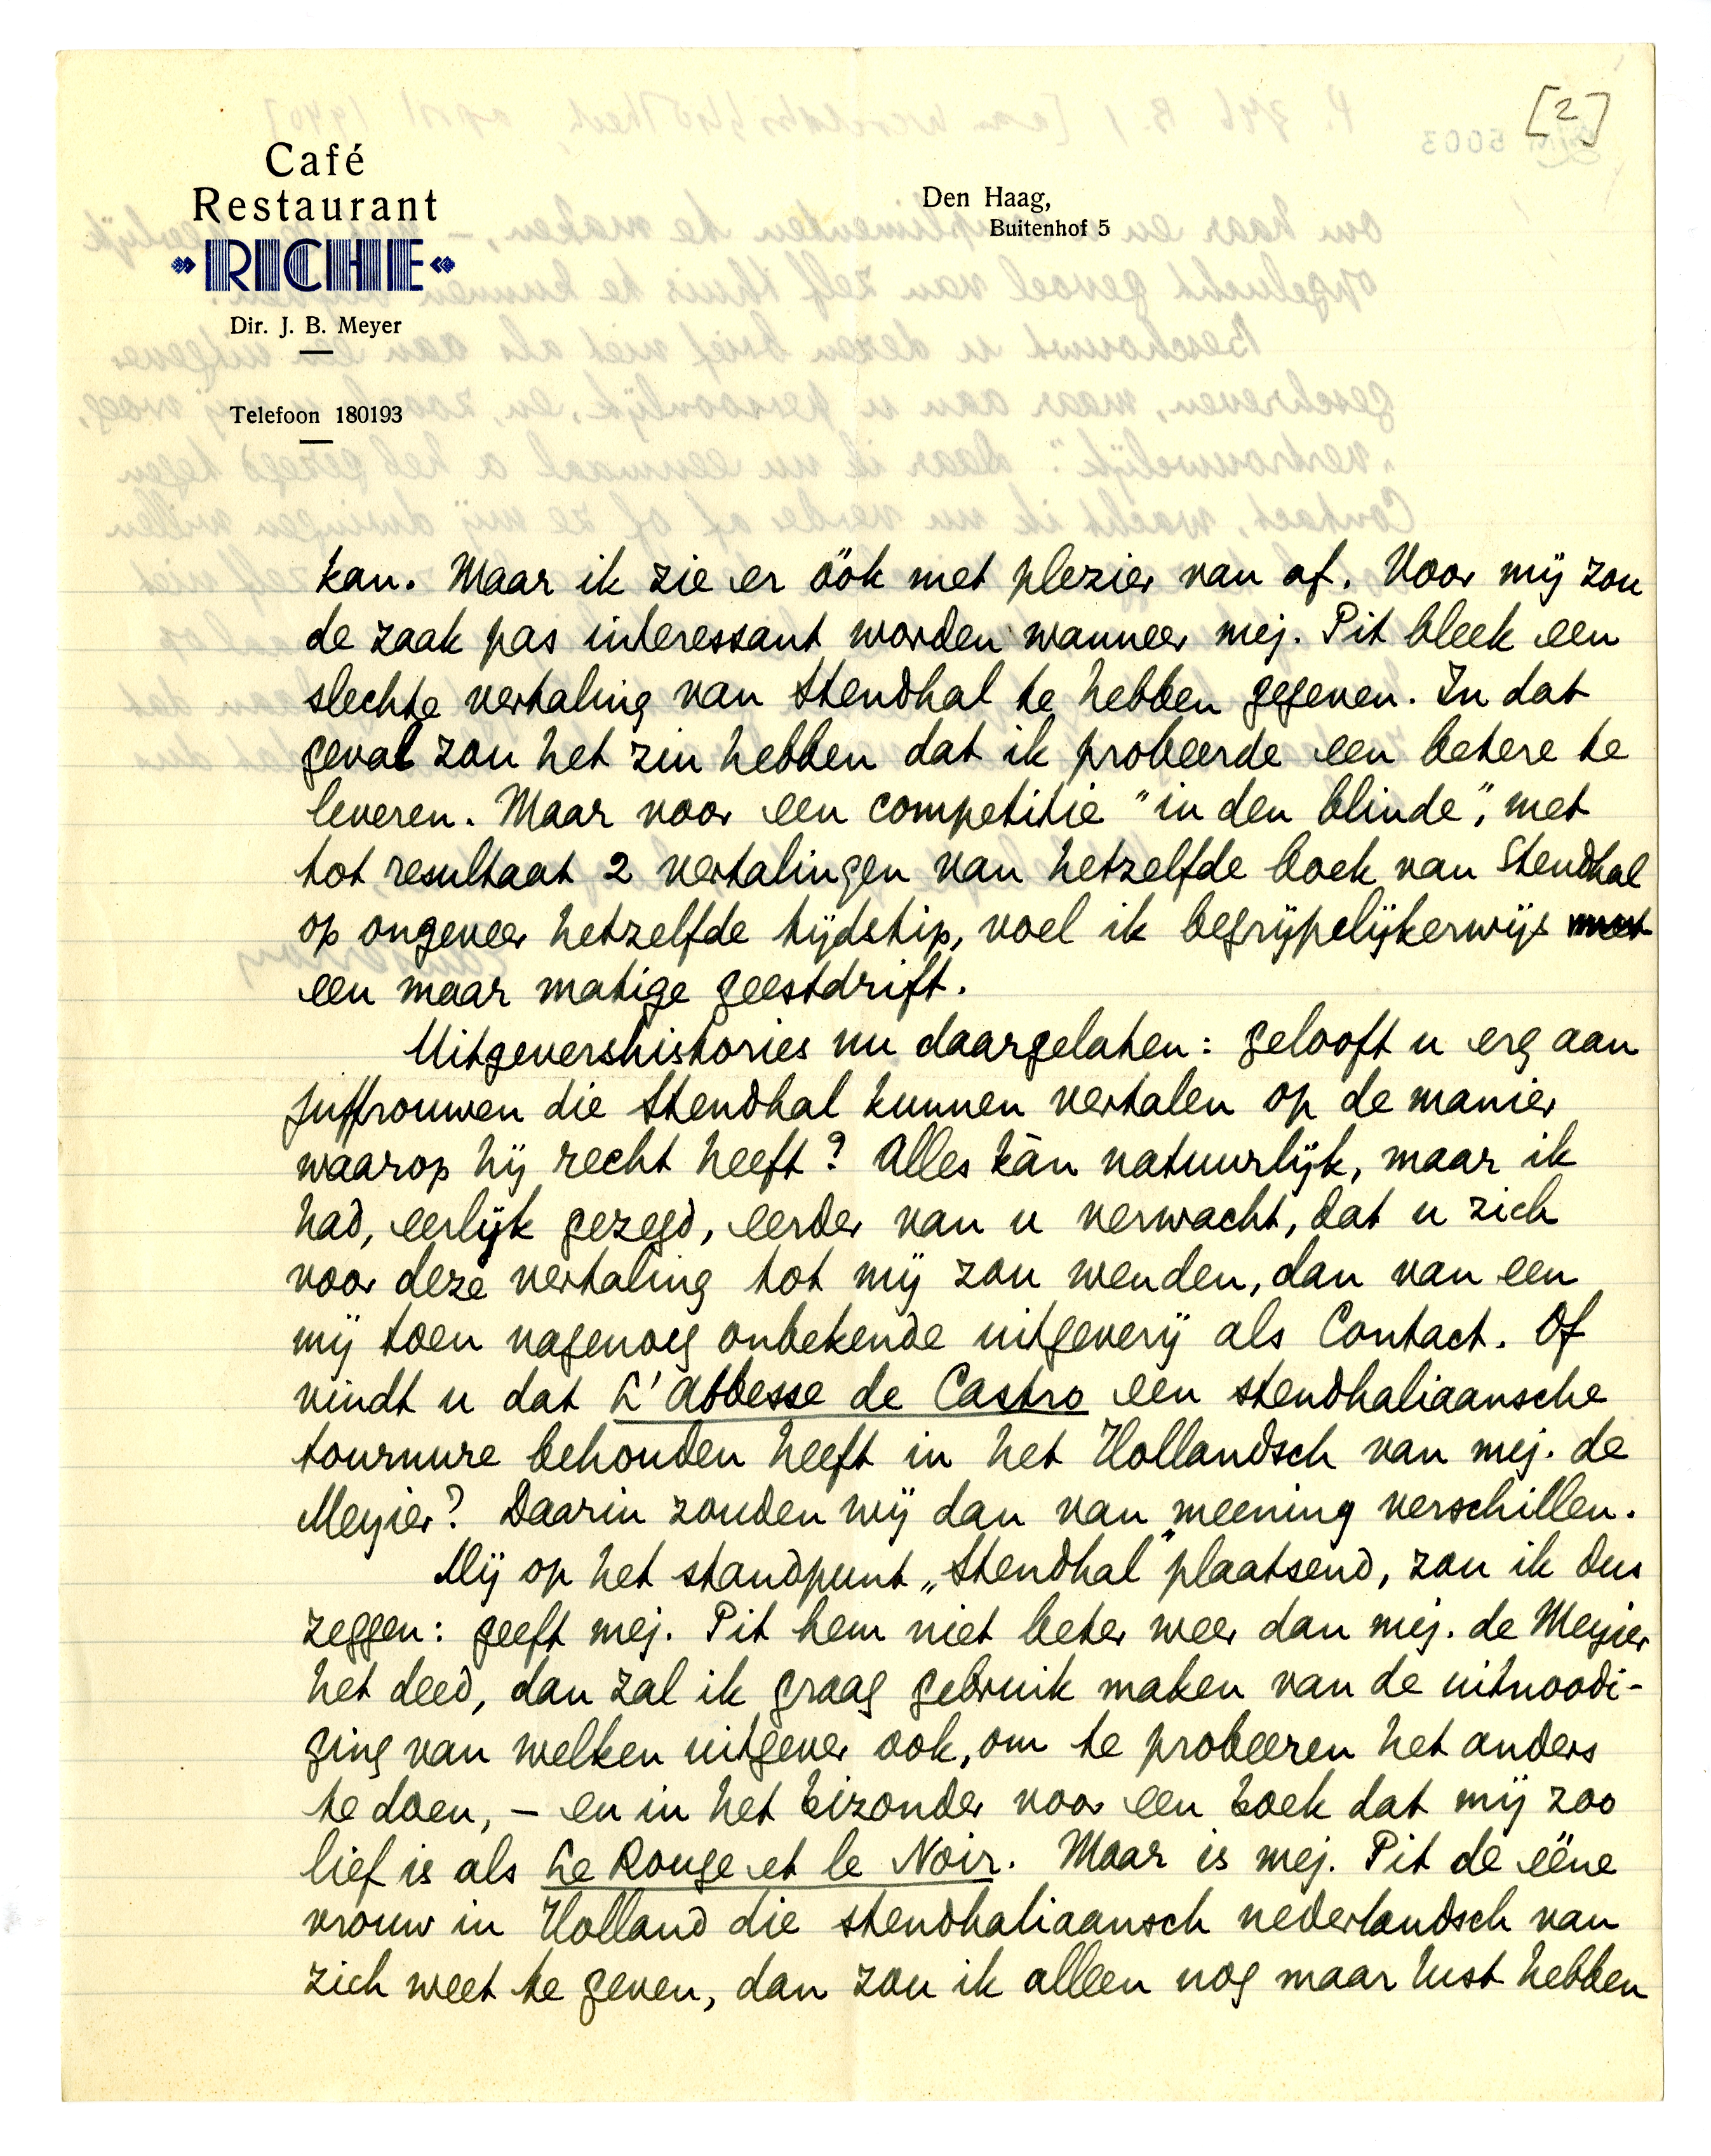 [2]
Café
Restaurant
RICHE
Dir. J. B. Meyer
Telefoon 180193
Den Haag,
Buitenhof 5
kan. Maar ik zie er óók met plezier van af. Voor mij zou
de zaak pas interessant worden wanneer mej. Pit bleek een
slechte vertaling van Stendhal te hebben gegeven. In dat
geval zou het zin hebben dat ik probeerde een betere te
leveren. Maar voor een competitie "in den blinde", met
tot resultaat 2 vertalingen van hetzelfde boek van Stendhal
op ongeveer hetzelfde tijdstip, voel ik begrijpelijkerwijs
een maar matige geestdrift.
Uitgevershistories nu daargelaten: gelooft u erg aan
juffrouwen die Stendhal kunnen vertalen op de manier
waarop hij recht heeft? Alles kàn natuurlijk, maar ik
had, eerlijk gezegd, eerder van u verwacht, dat u zich
voor deze vertaling tot mij zou wenden, dan van een
mij toen nagenoeg onbekende uitgeverij als Contact. Of
vindt u dat L'Abbesse de Castro een stendhaliaansche
tournure behouden heeft in het Hollandsch van mej. de
Meyier? Daarin zouden wij dan van meening verschillen.
Mij op het standpunt „Stendhal" plaatsend, zou ik dus
zeggen: geeft mej. Pit hem niet beter weer dan mej. de Meyier
het deed, dan zal ik graag gebruik maken van de uitnoodi-
ging van welken uitgever ook, om te probeeren het anders
te doen, – en in het bizonder voor een boek dat mij zoo
lief is als Le Rouge et le Noir. Maar is mej. Pit de ééne
vrouw in Holland die stendhaliaansch nederlandsch van
zich weet te geven, dan zou ik alleen nog maar lust hebben